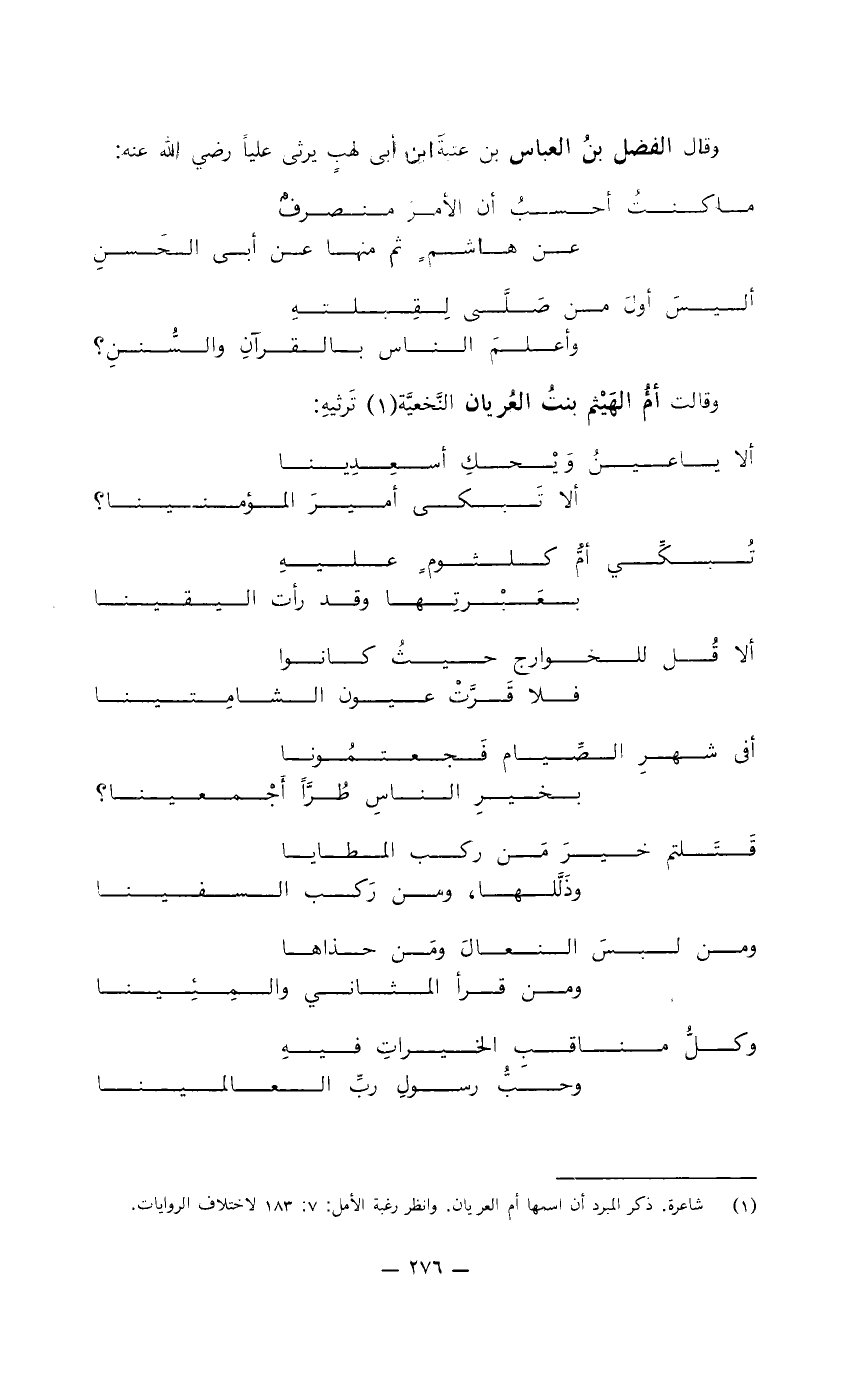 وقال الفضل بنُ العباس بن عتبةَ ابن أبى لهبٍ يرثى علياً رضي الله عنه:
ماكنتُ أحسبُ أن الأمرَ منصرفٌ
عن هاشمٍ ثم منها عن أبى الحَسنِ
أليسَ أولَ من صَلَّى لِقِبلتهِ
وأعلمَ الناسِ بالقرآنِ والسُّننِ؟
وقالت أمُّ الهَيْثم بنتُ العُريان النَّخعيَّة(١) تَرثيهِ:
ألا ياعينُ وَيْحكِ أسعِدِينا
ألا تَبكى أميرَ المؤمنينا؟
تُبكِّي أمُّ كلثومٍ عليهِ
بعَبْرتِها وقد رأت اليقينا
ألا قُل للخوارج حيثُ كانوا
فلا قَرَّتْ عيون الشامِتينا
أفى شهرِ الصِّيام فَجعتمُونا
بخيرِ الناسِ طُرَّاً أَجْمعينا؟
قَتَلتم خيرَ مَن ركب المطايا
وذَلَّلها، ومن رَكب السفينا
ومن لبسَ النعالَ ومَن حذاها
ومن قرأ المثاني والمِئِينا
وكلُّ مناقبِ الخيراتِ فيهِ
وحبُّ رسولِ ربِّ العالمينا
(١) شاعرة. ذكر المبرد أن اسمها أم العريان. وانظر رغبة الأمل: ٧: ١٨٣ لاختلاف الروايات.
— ٢٧٦ —